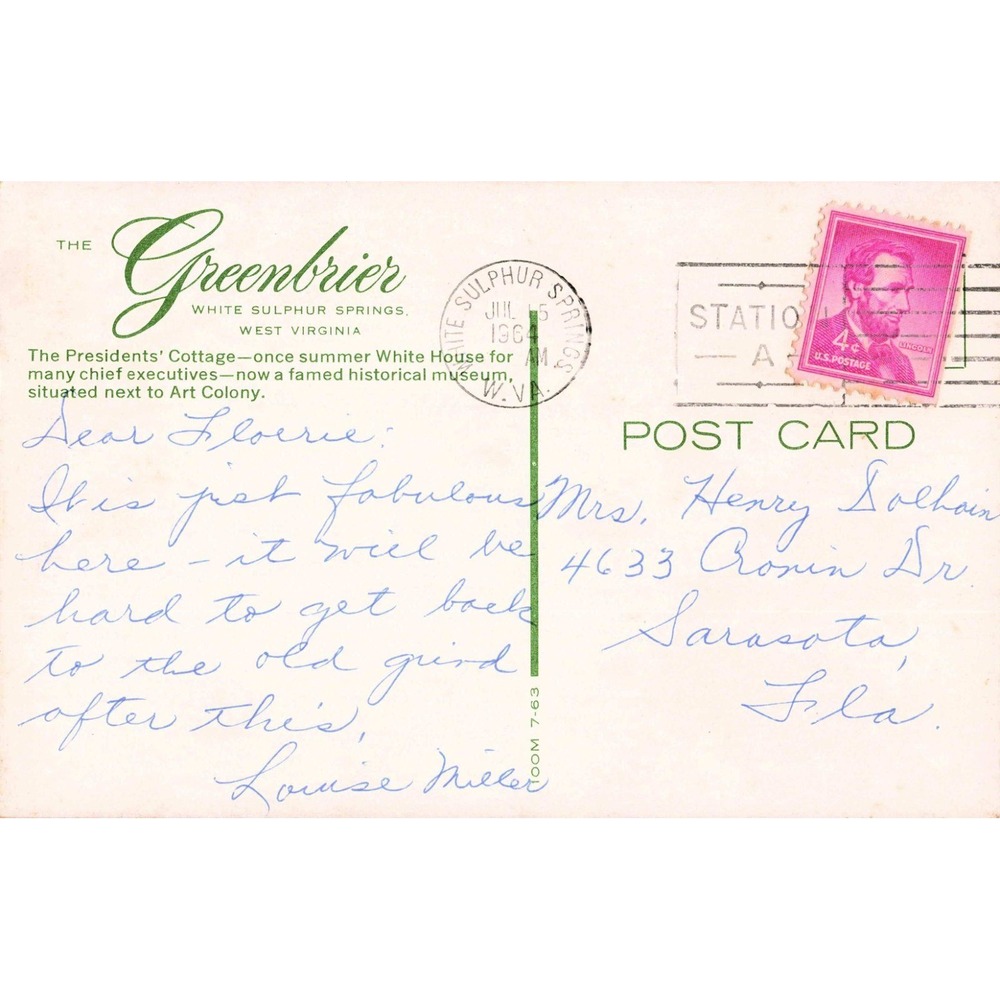 THE Greenbrier
WHITE SULPHUR SPRINGS,
WEST VIRGINIA
The Presidents' Cottage—once summer White House for
many chief executives—now a famed historical museum,
situated next to Art Colony.
Dear
It is just fabulous
here - it will be
hard to get back
to the old grind
after this,
Louise Miller
100M 7-63
WHITE SULPHUR SPRINGS
JUL 15
1964
AM
W. VA.
STATIO
A
4¢
U.S. POSTAGE
LINCOLN
POST CARD
Mrs. Henry
4633 Cronin Dr.
Sarasota,
Fla.